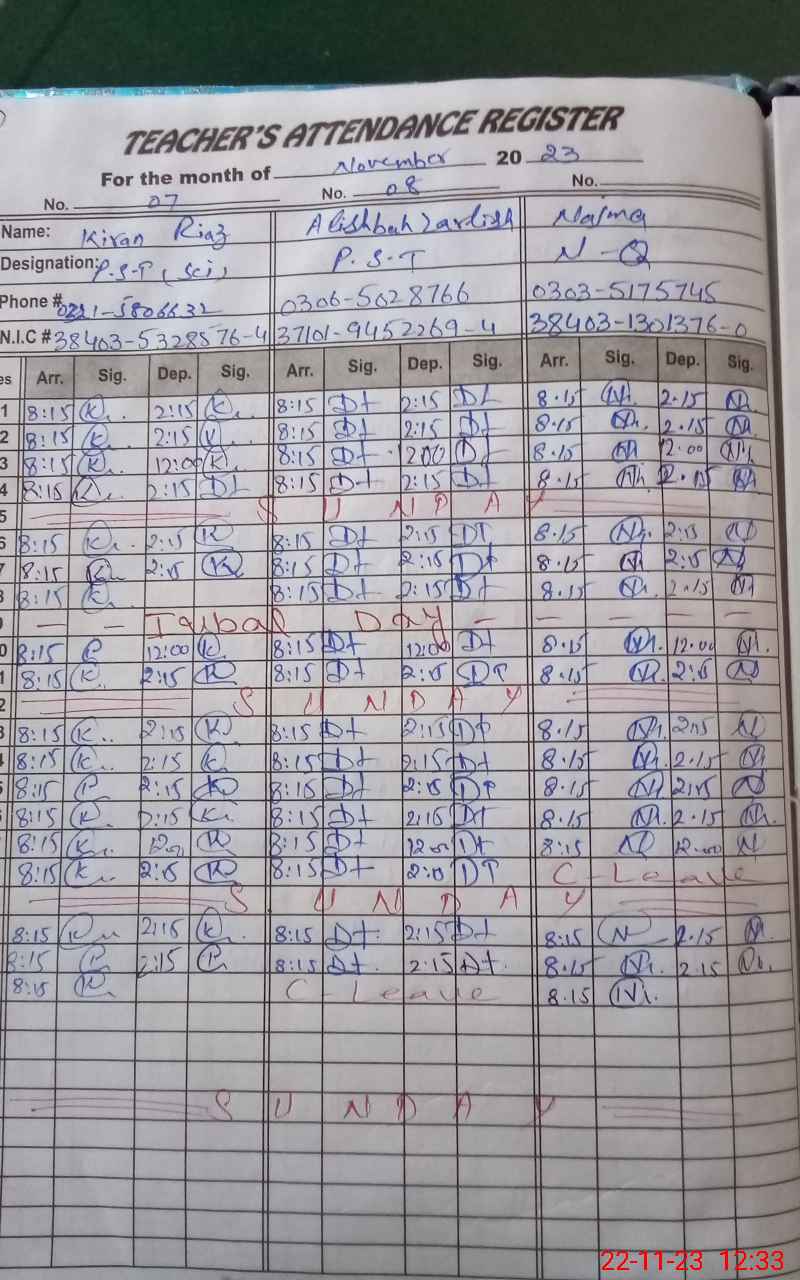 TEACHER'S ATTENDANCE REGISTER
For the month of November 20 23
No. 07 No. 08 No.
Name: Kiran Riaz Alishbah Najma
Designation: P.S.T (Sci) P.S.T N-Q
Phone # 5806632 0306-5028766 0303-5175745
N.I.C # 38403-5328576-4 37101-9452269-4 38403-1301376-0
es Arr. Sig. Dep. Sig. Arr. Sig. Dep. Sig. Arr. Sig. Dep. Sig.
1 8:15 K. 2:15 K. 8:15 Dt 2:15 Dt 8.15 N. 2.15 N.
2 8:15 K. 2:15 K. 8:15 Dt 2:15 Dt 8.15 N. 2.15 N.
3 8:15 K. 12:00 K. 8:15 Dt 12:00 Dt 8.15 N. 12.00 N.
4 8:15 K. 2:15 Dt 8:15 Dt 2:15 Dt 8.15 N. 2.15 N.
5 S U N D A Y
6 8:15 K. 2:15 K 8:15 Dt 2:15 Dt 8.15 N. 2:15 N
7 8:15 K. 2:15 K 8:15 Dt 2:15 Dt 8.15 N 2:15 N
8 8:15 K. 8:15 Dt 2:15 Dt 8.15 N. 2.15 N
— — Iqbal Day — — — — —
0 8:15 12:00 K. 8:15 Dt 12:00 Dt 8.15 N. 12.00 N.
1 8:15 K. 2:15 K 8:15 Dt 2:15 Dt 8.15 N. 2:15 N
2 S U N D A Y
3 8:15 K.. 2:15 K. 8:15 Dt 2:15 Dt 8.15 N. 2:15 N
8:15 K.. 2:15 K 8:15 Dt 2:15 Dt 8.15 N. 2.15 N
8:15 2:15 K 8:15 Dt 2:15 Dt 8.15 N 2:15 N
8:15 K. 2:15 K. 8:15 Dt 2:15 Dt 8.15 N. 2.15 N.
8:15 K.. 12:00 K 8:15 Dt 12:00 Dt 8:15 N 12.00 N
8:15 K.. 2:15 K 8:15 Dt 2:15 Dt C-Leave
S U N D A Y
8:15 K 2:15 K. 8:15 Dt. 2:15 Dt 8:15 N 2.15 N.
8:15 2:15 8:15 Dt. 2:15 Dt. 8.15 N. 2.15 N.
8:15 K. C-Leave 8.15 N.
S U N D A Y
22-11-23 12:33